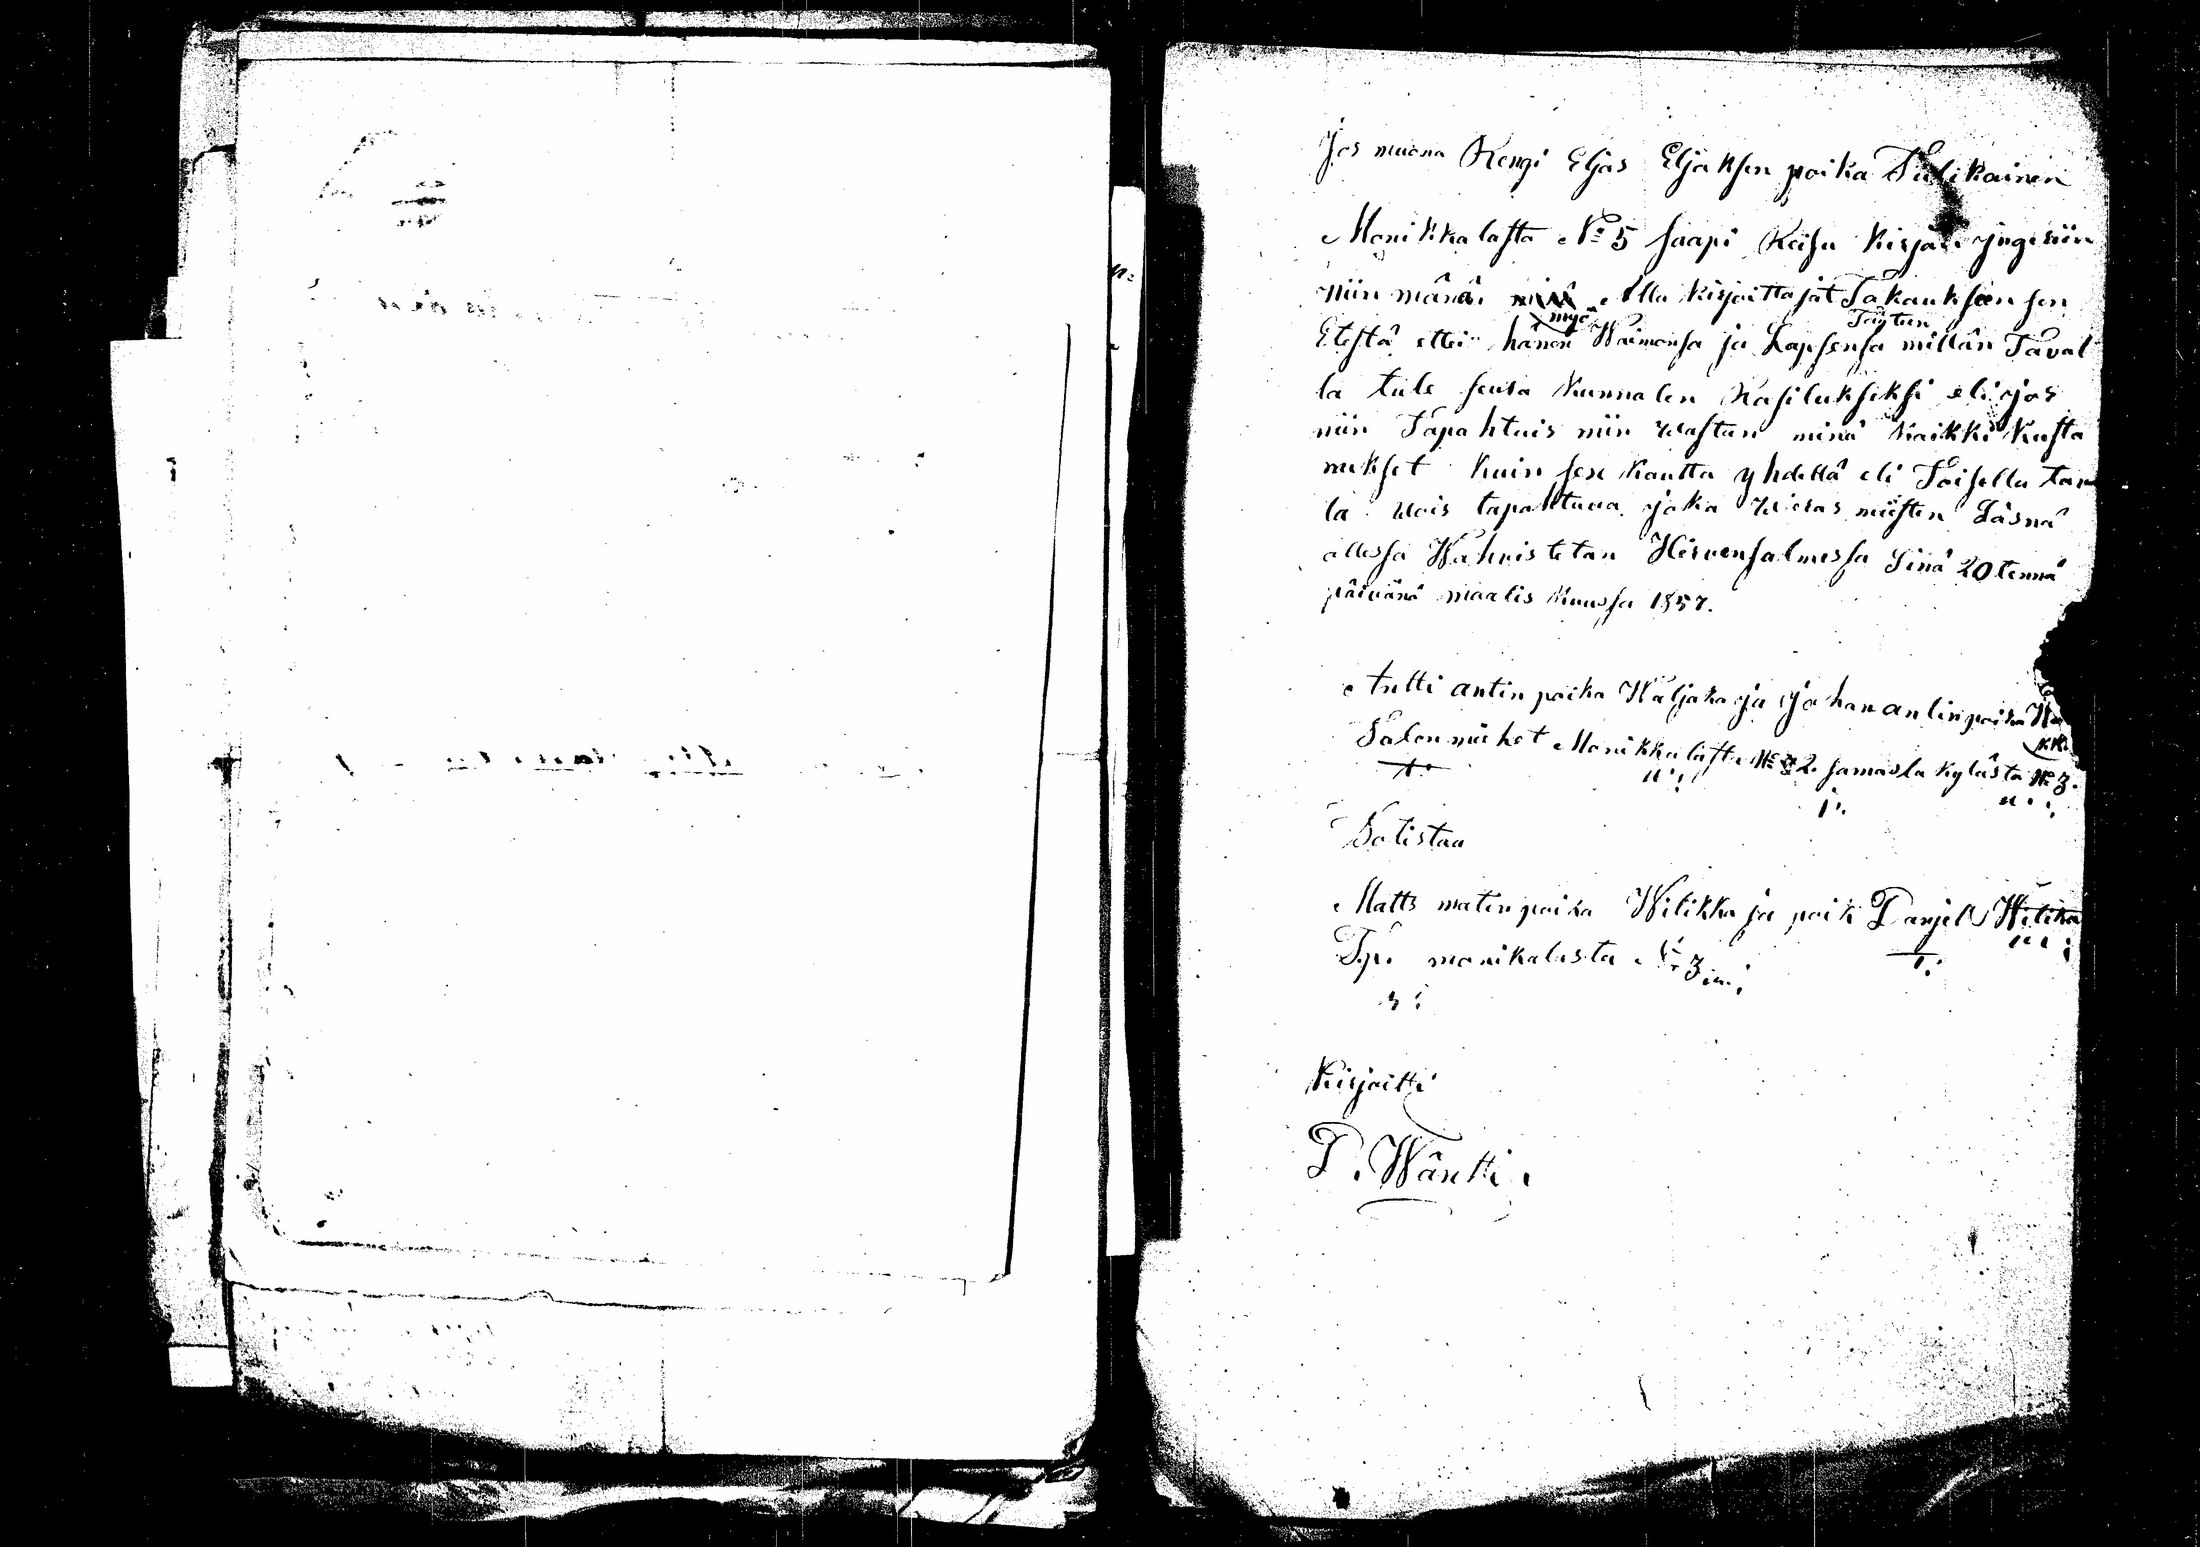 Jos muona Rengi Eljas Eljaksen poika Tulikainen
Monikkalasta No 5 saapi Reisu kirjan yngeriin
niin mänä Alla kirjoittajat Takauksen sen
myö Täyteen
Etestä ettei hänen Waimonsa ja Lapsensa millän Taval
la tule seura kunnalen Rasitukseksi eli jos
niin Tapahtuis niin wastan minä kaikki kusta
nukset kuin sen kautta yhdellä eli Toisella tava
la wois tapahtuva joka wieras miesten Läsnä
ollessa Wahvistetan Hirvensalmessa Sinä 20 tennä
päivänä maalis kuussa 1857.
Antti antin poika Häljakaja Johan antin poika
Talon miehet Monikkalasta No 2. samasta kylästä No 3.
Totistaa
Matts matin poika Wilikka ja poik Danjel Wilika
T.p. monikalasta No 3
Kirjoitti
P. Wäntti.